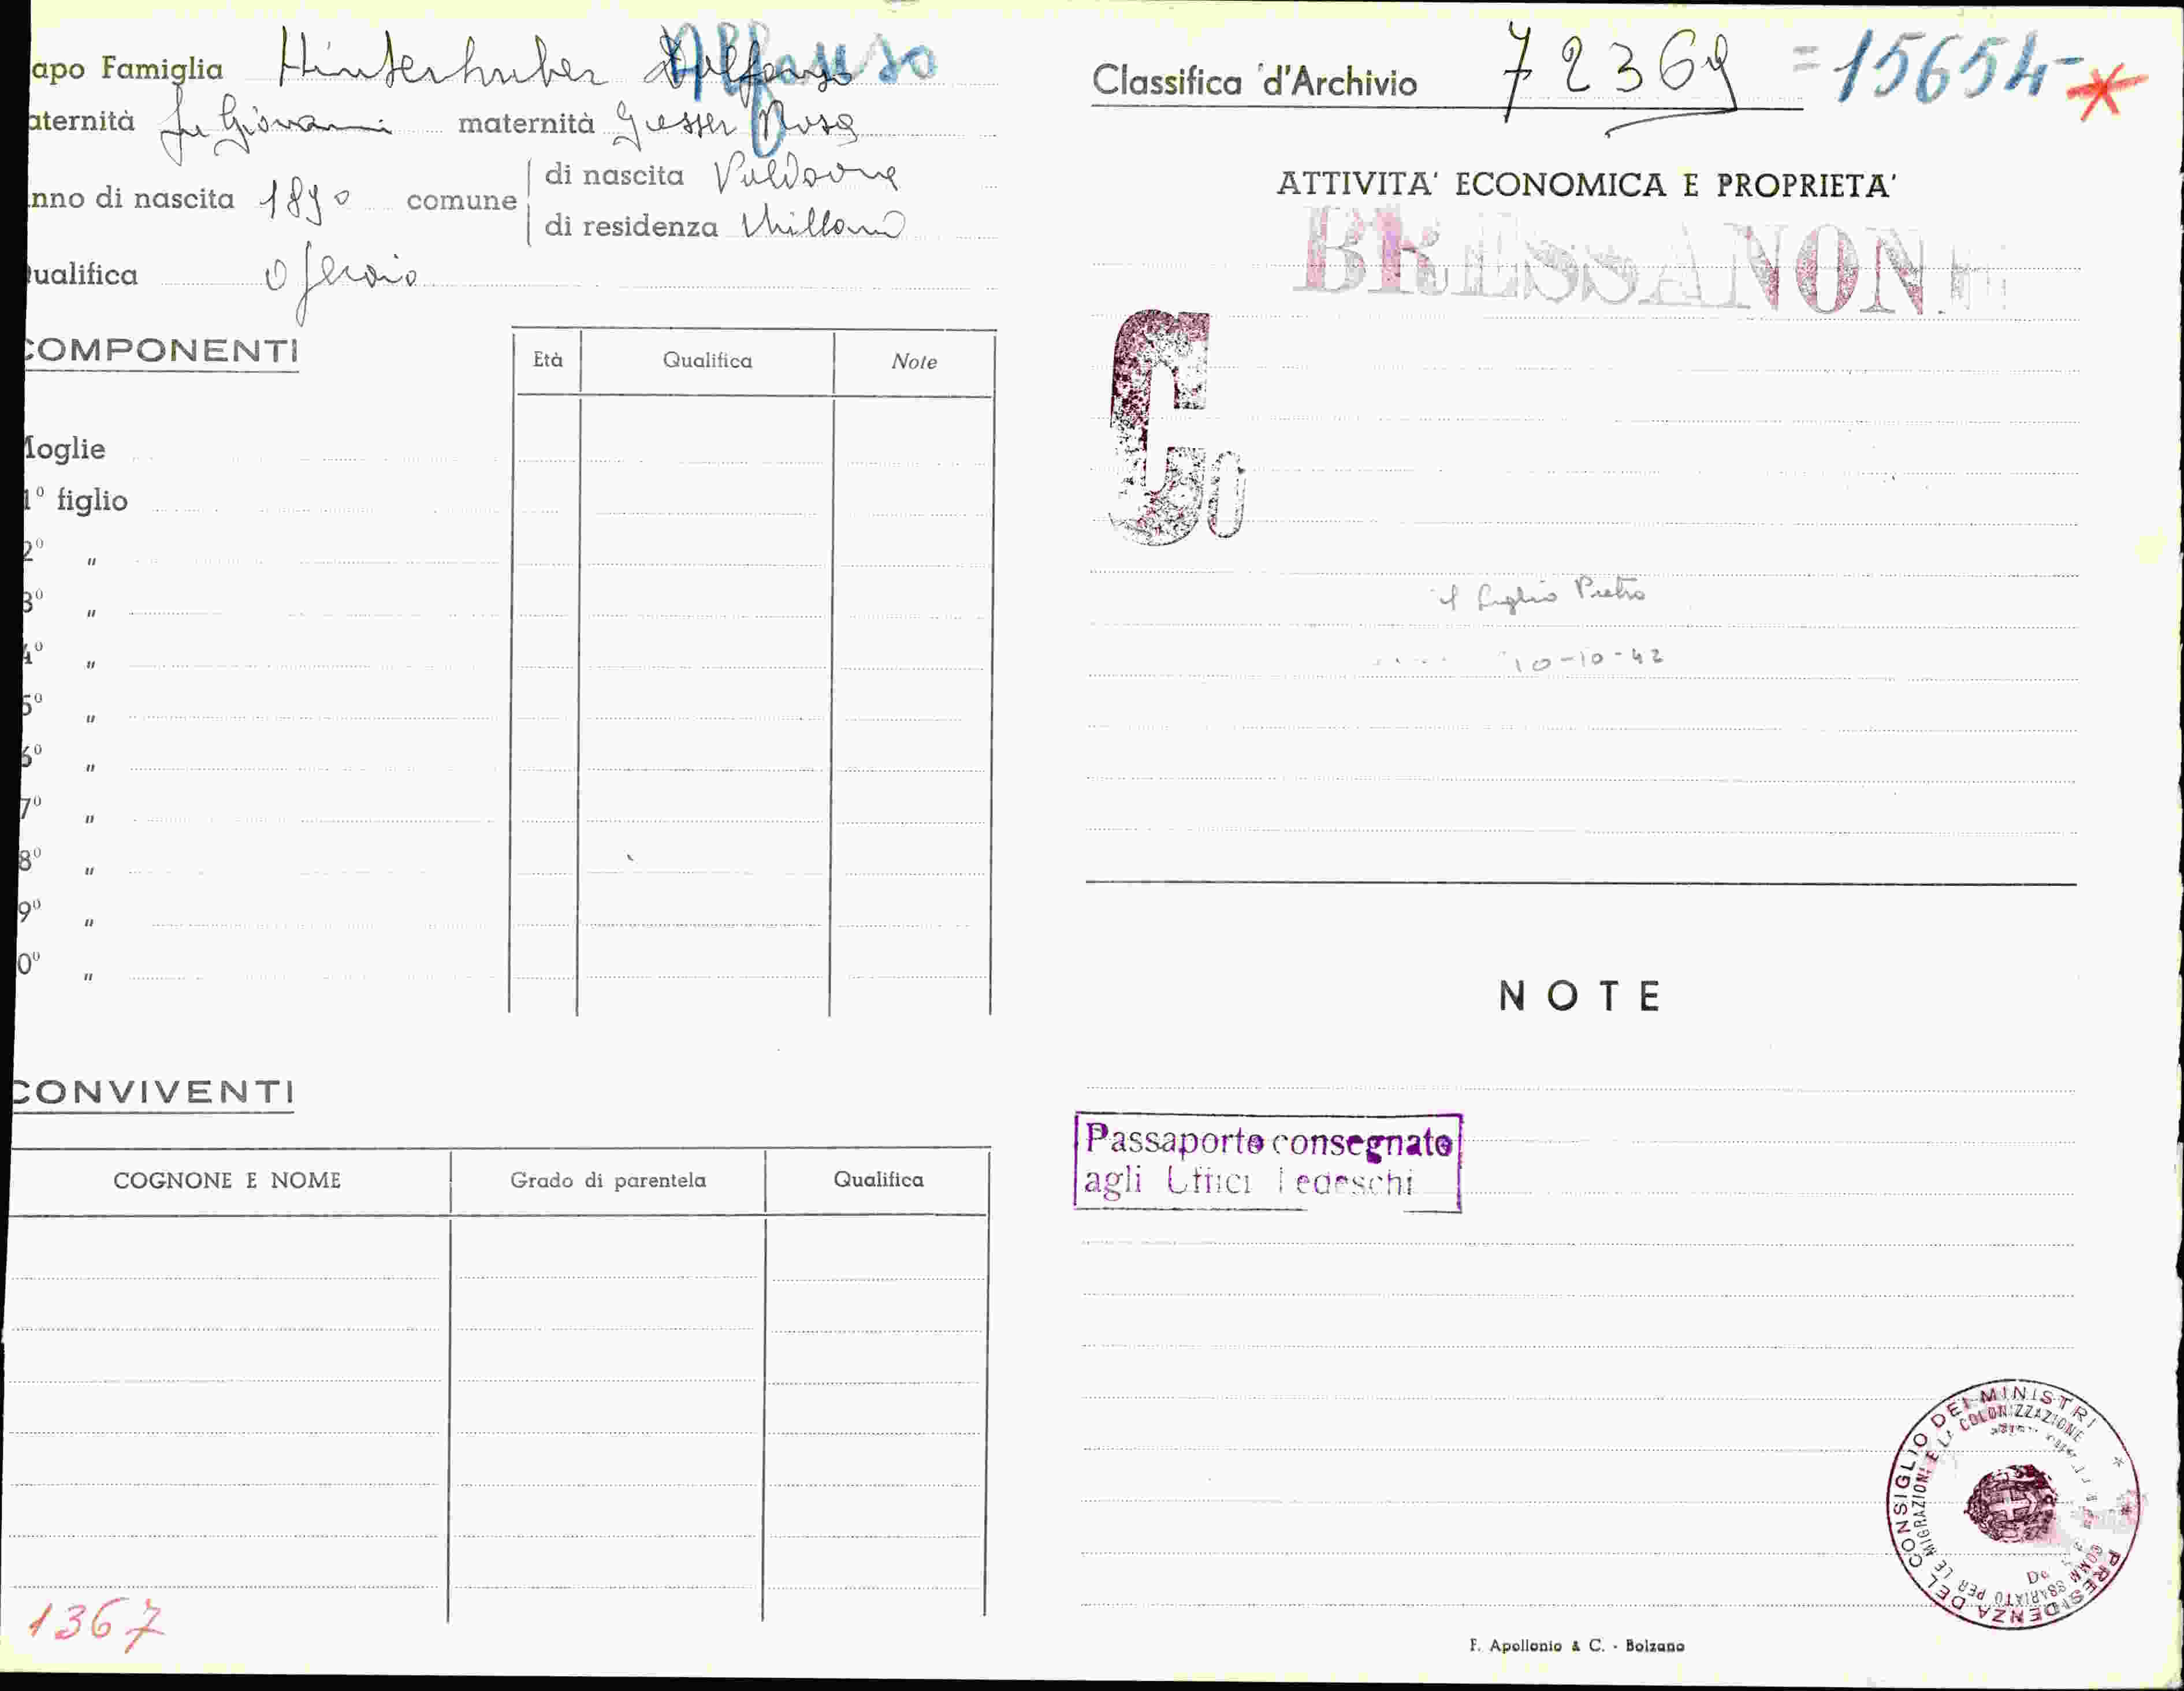 apo Famiglia Hinterhuber Alfonso
aternità fu Giovanni maternità Gasser Rosa
nno di nascita 1890 comune di nascita Valdaora
di residenza Millan
ualifica Operaio
COMPONENTI
Età Qualifica Note
Moglie
1º figlio
2º "
3º "
4º "
5º "
6º "
7º "
8º "
9º "
0º "
CONVIVENTI
COGNONE E NOME Grado di parentela Qualifica
1367
Classifica d'Archivio 72369 =15654-
ATTIVITA' ECONOMICA E PROPRIETA'
BRESSANONE
G0
il figlio Pietro
10-10-42
NOTE
Passaporto consegnato
agli Uffici Tedeschi
PRESIDENZA DEL CONSIGLIO DEI MINISTRI
COMMISSARIATO PER LE MIGRAZIONI E LA COLONIZZAZIONE
F. Apollonio & C. - Bolzano